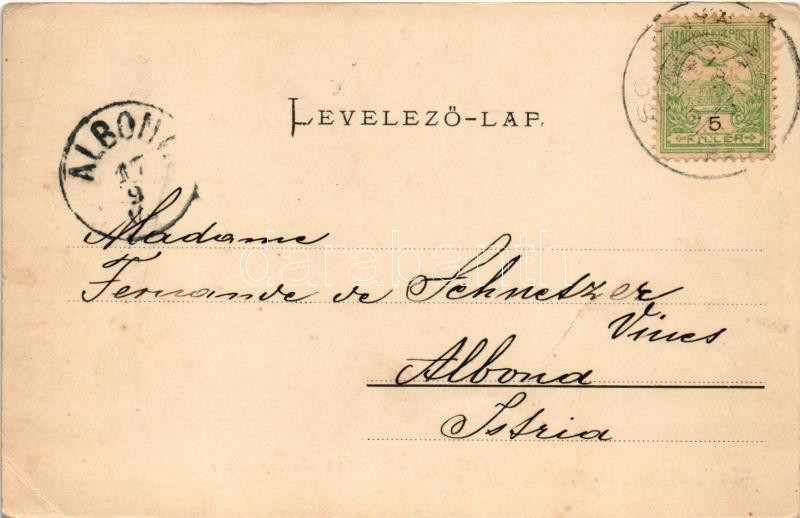 LEVELEZŐ-LAP.
MAGYAR KIR. POSTA
5
FILLÉR
ALBONA
17
9
Madame
Fernande de Schnetzer
Vines
Albona
Istria
darabanth